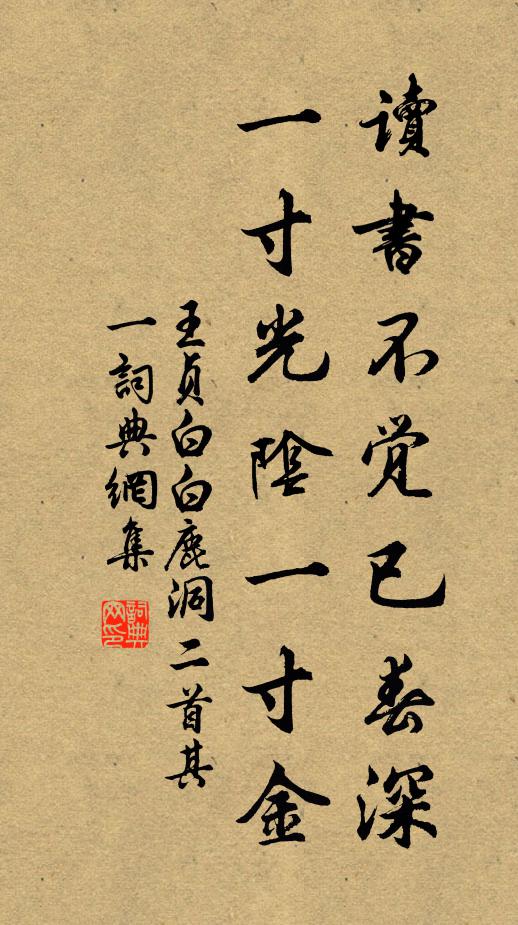 讀書不覺已春深
一寸光陰一寸金
王貞白白鹿洞二首其
一詞典網集
詞典
网印